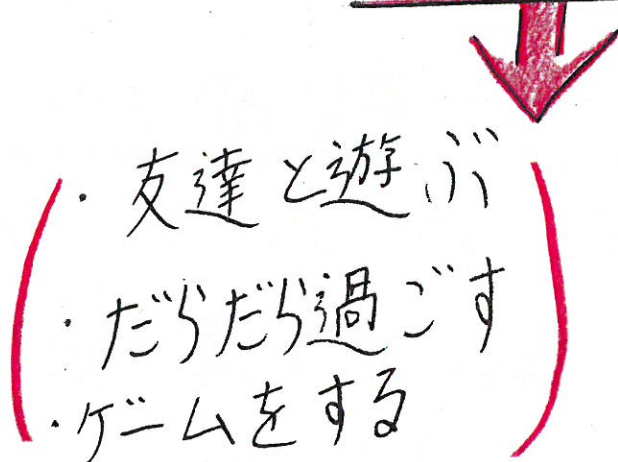 ・友達と遊ぶ
・だらだら過ごす
・ゲームをする